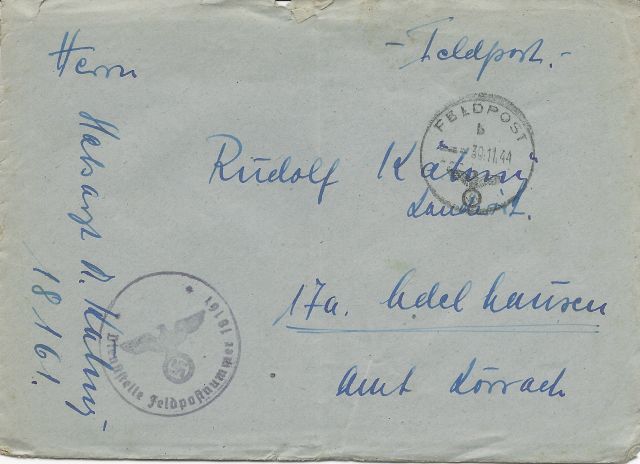 Herrn
-Feldpost.-
FELDPOST
b
30.11.44
Rudolf
Landwirt.
17a. Adelhausen
Amt Lörrach
18161.
Dienststelle Feldpostnummer 18161